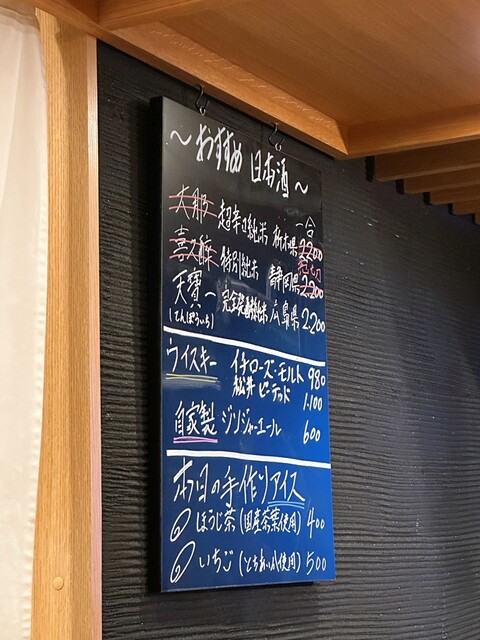 〜おすすめ 日本酒〜
一合
大那 超辛口純米 栃木県 2200
売切
喜久酔 特別純米 静岡県 2200
天寶一 完全発酵純米 広島県 2.200
(てんぽういち)
ウイスキー イチローズ・モルト 980
松井 ピーテッド 1.100
自家製 ジンジャーエール 600
本日の手作りアイス
ほうじ茶(国産茶葉使用) 400
いちご(とちあいか使用) 500